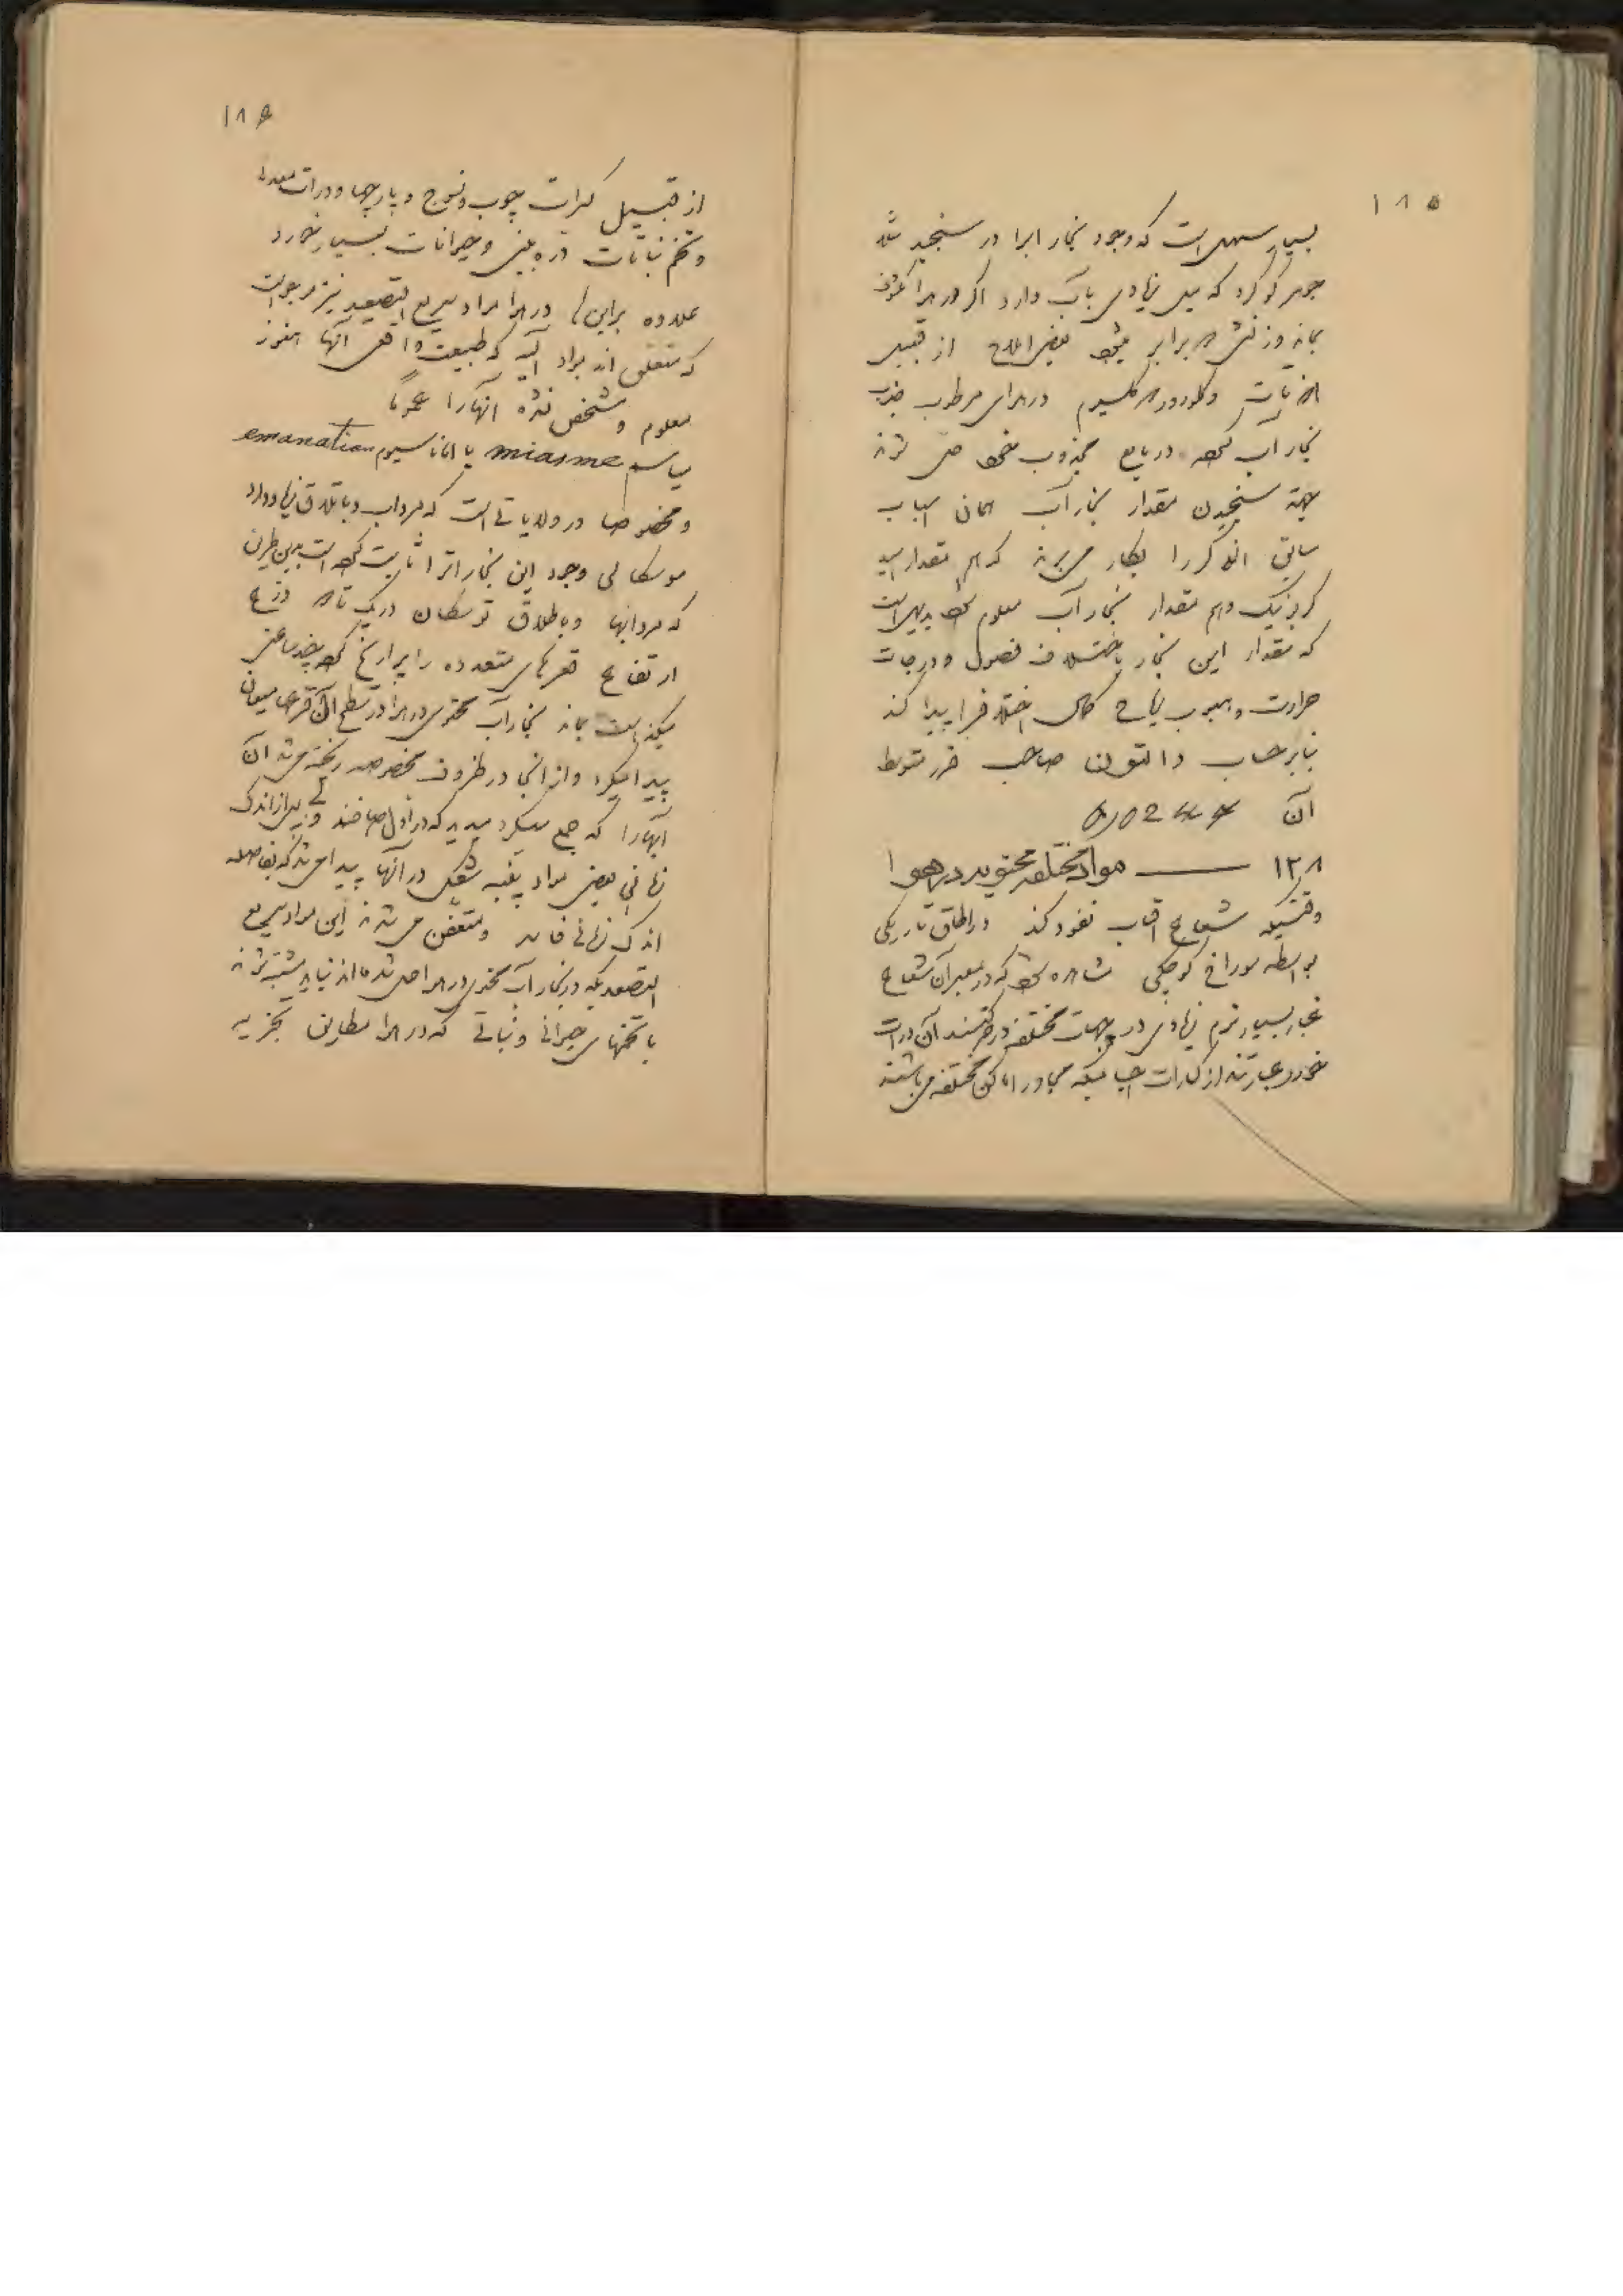 ۱۸۵
بسیار سهل است که وجود بخار ابرا در سنجید شد
جوهر کوکرد که میل زیادی باب دارد اکر در هوا مکشوف
بماند وزنش برابر میشود بعضی املاح از قبیل
و کلورور کلسیوم در هوای مرطوب جذب
بخار آب نموده در مایع مجذوب خود حل شوند
جهة سنجیدن مقدار بخار آب همان اسباب
سابق الذکر را بکار میبرند که هم مقدار اسید
کربونیک و هم مقدار بخار آب معلوم شود بدیهی است
که مقدار این بخار باختلاف فصول و درجات
حرارت و هبوب ریاح کمال اختلاف را پیدا کند
بنابر حساب دالتون صاحب قدر متوسط
آن
۱۳۸ — مواد مختلفه محتویه در هوا
وقتیکه شعاع افتاب نفوذ کند در اطاق تاریکی
بواسطه سوراخ کوچکی مشاهده شود که در معبر آن شعاع
غبار بسیار نرم زیادی در جهات مختلفه در حرکتند آن ذرات
خورد عبارتند از کسرات اجسامیکه مجاور اماکن مختلفه میباشند
۱۸۶
از قبیل کسرات چوب و نسوج و پارچها و ذرات معدنی
و تخم نباتات ذره بینی و حیوانات بسیار خورد
علاوه براین در هوا مواد سریع التصعید نیز موجود است
که متعلق اند بمواد آلیه که طبیعت واقعی آنها هنوز
معلوم و مشخص نشده انها را عموماً
میاسم miasme یا اماناسیون emanation
و مخصوصا در ولایاتی است که مرداب و باتلاق زیاد دارد
موسکاتی وجود این بخارات را ثابت نموده است بدین طریق
که مردابها و باطلاق توسکان در یک تا ذرع
ارتفاع قرعهای متعدده را پر از یخ نموده چند ساعتی
میکذاشت بماند بخار آب محتوی در هوا در سطح آن قرعها میعان
پیدا میکرد و از آنجا در ظروف مخصوصه ریخته میشد آن
آبها را که جمع میکرد میدید که در اول صافند و بعد از اندک
زمانی بعضی مواد پنبه شکل در آنها پیدا میشد که بفاصله
اندک زمانی فاسد و متعفن میشدند این مواد سریع
التصعید که در بخار آب محتوی در هوا حل شده‌اند نباید مشتبه شوند
با تخمهای حیوانی و نباتی که در هوا مطابق تجزیه